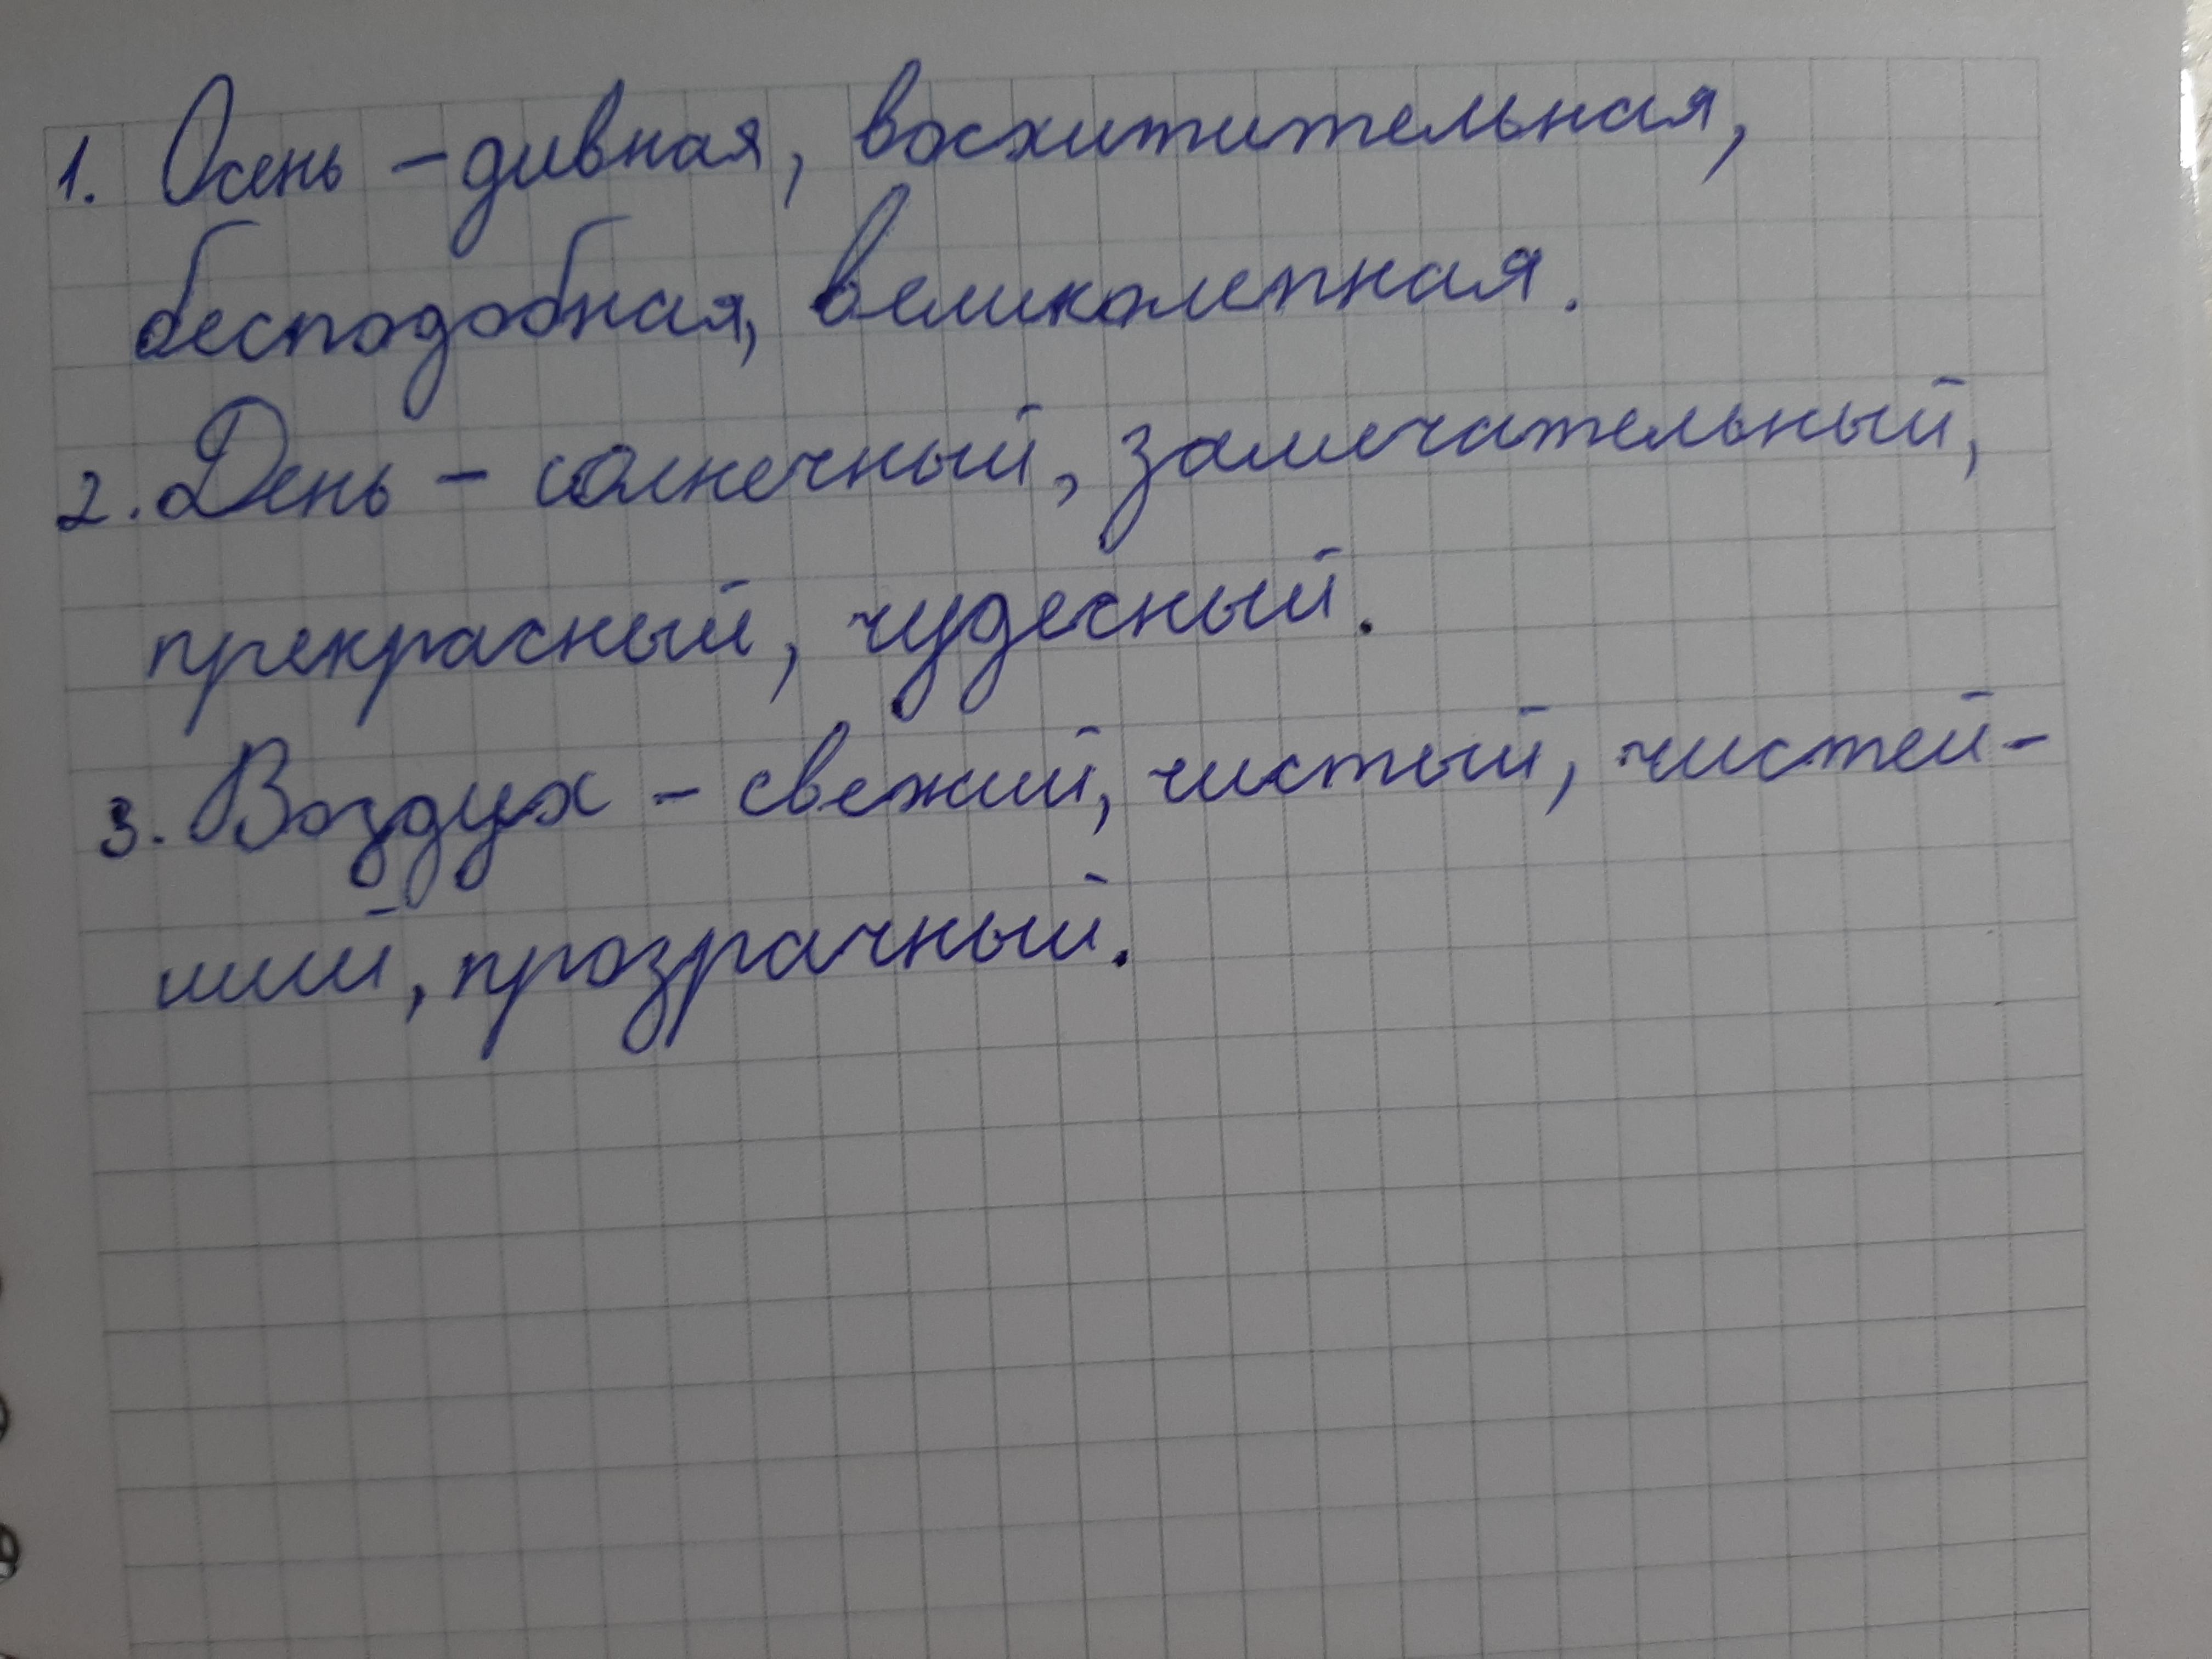 1. Осень - дивная, восхитительная,
бесподобная, великолепная.
2. День - солнечный, замечательный,
прекрасный, чудесный.
3. Воздух - свежий, чистый, чистей-
ший, прозрачный.